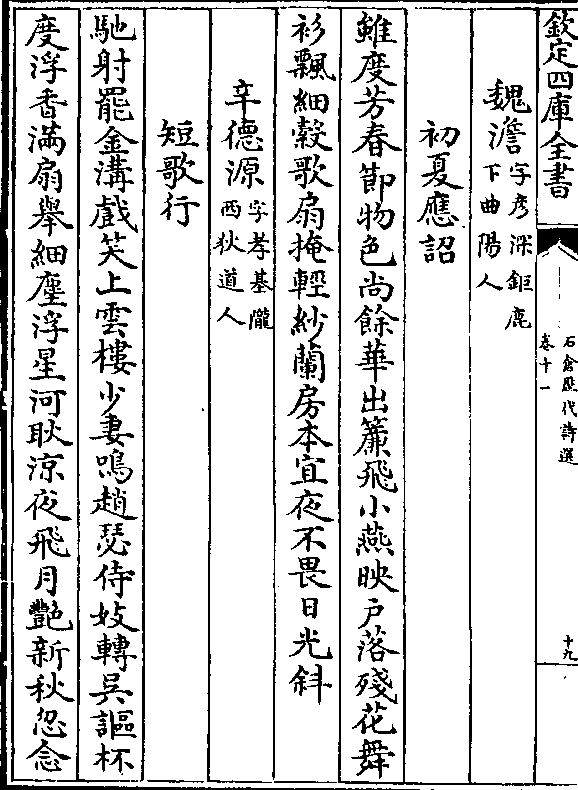 欽定四庫全書
石倉歷代詩選
卷十一
十九
魏澹字彦深鉅鹿
下曲陽人
初夏應詔
雖度芳春節物色尚餘華出簾飛小燕映戸落殘花舞
衫飄細縠歌扇掩輕紗蘭房本宜夜不畏日光斜
辛德源字孝基隴
西狄道人
短歌行
馳射罷金溝戲笑上雲樓少妻鳴趙瑟侍妓轉吳謳杯
度浮香滿扇舉細塵浮星河耿涼夜飛月艷新秋忽念